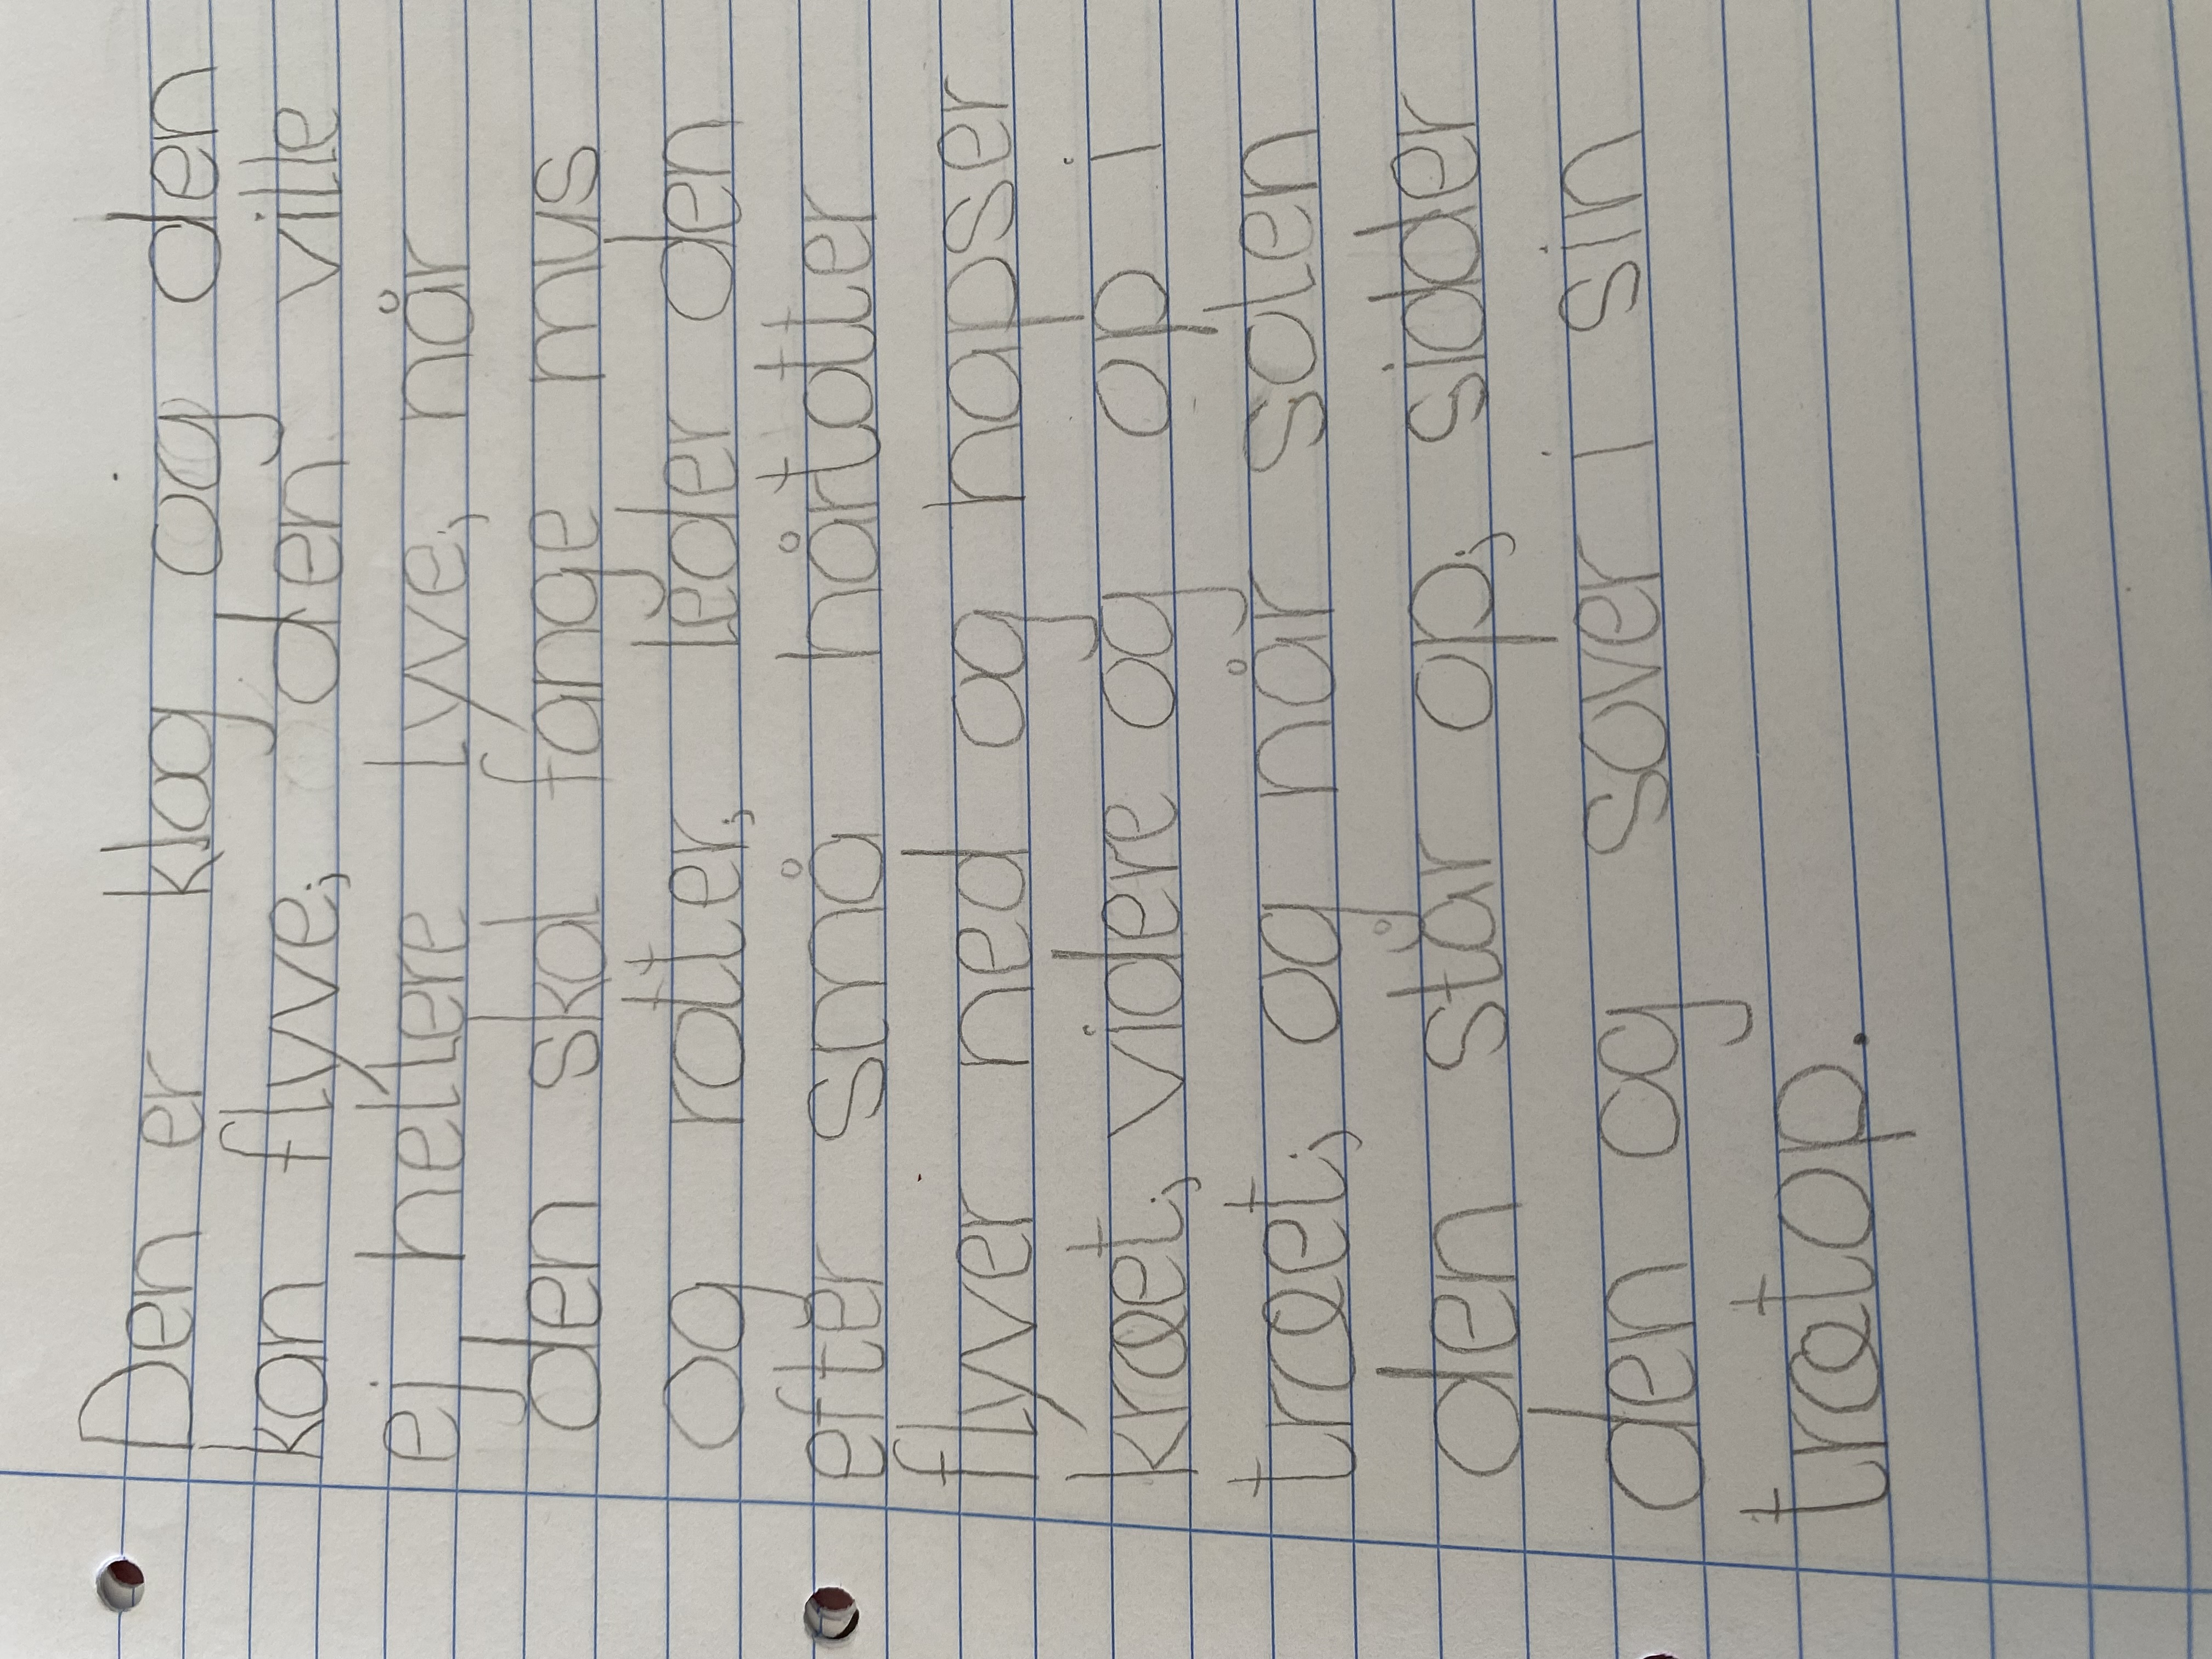 Den er klog og den
kan flyve, den ville
ej hellere lyve, når
den skal fange mus
og rotter, leder den
efter små håntotter
flyver ned og hapser
kræet, videre og op i
træet, og når solen
den står op, sidder
den og sover i sin
trætop.